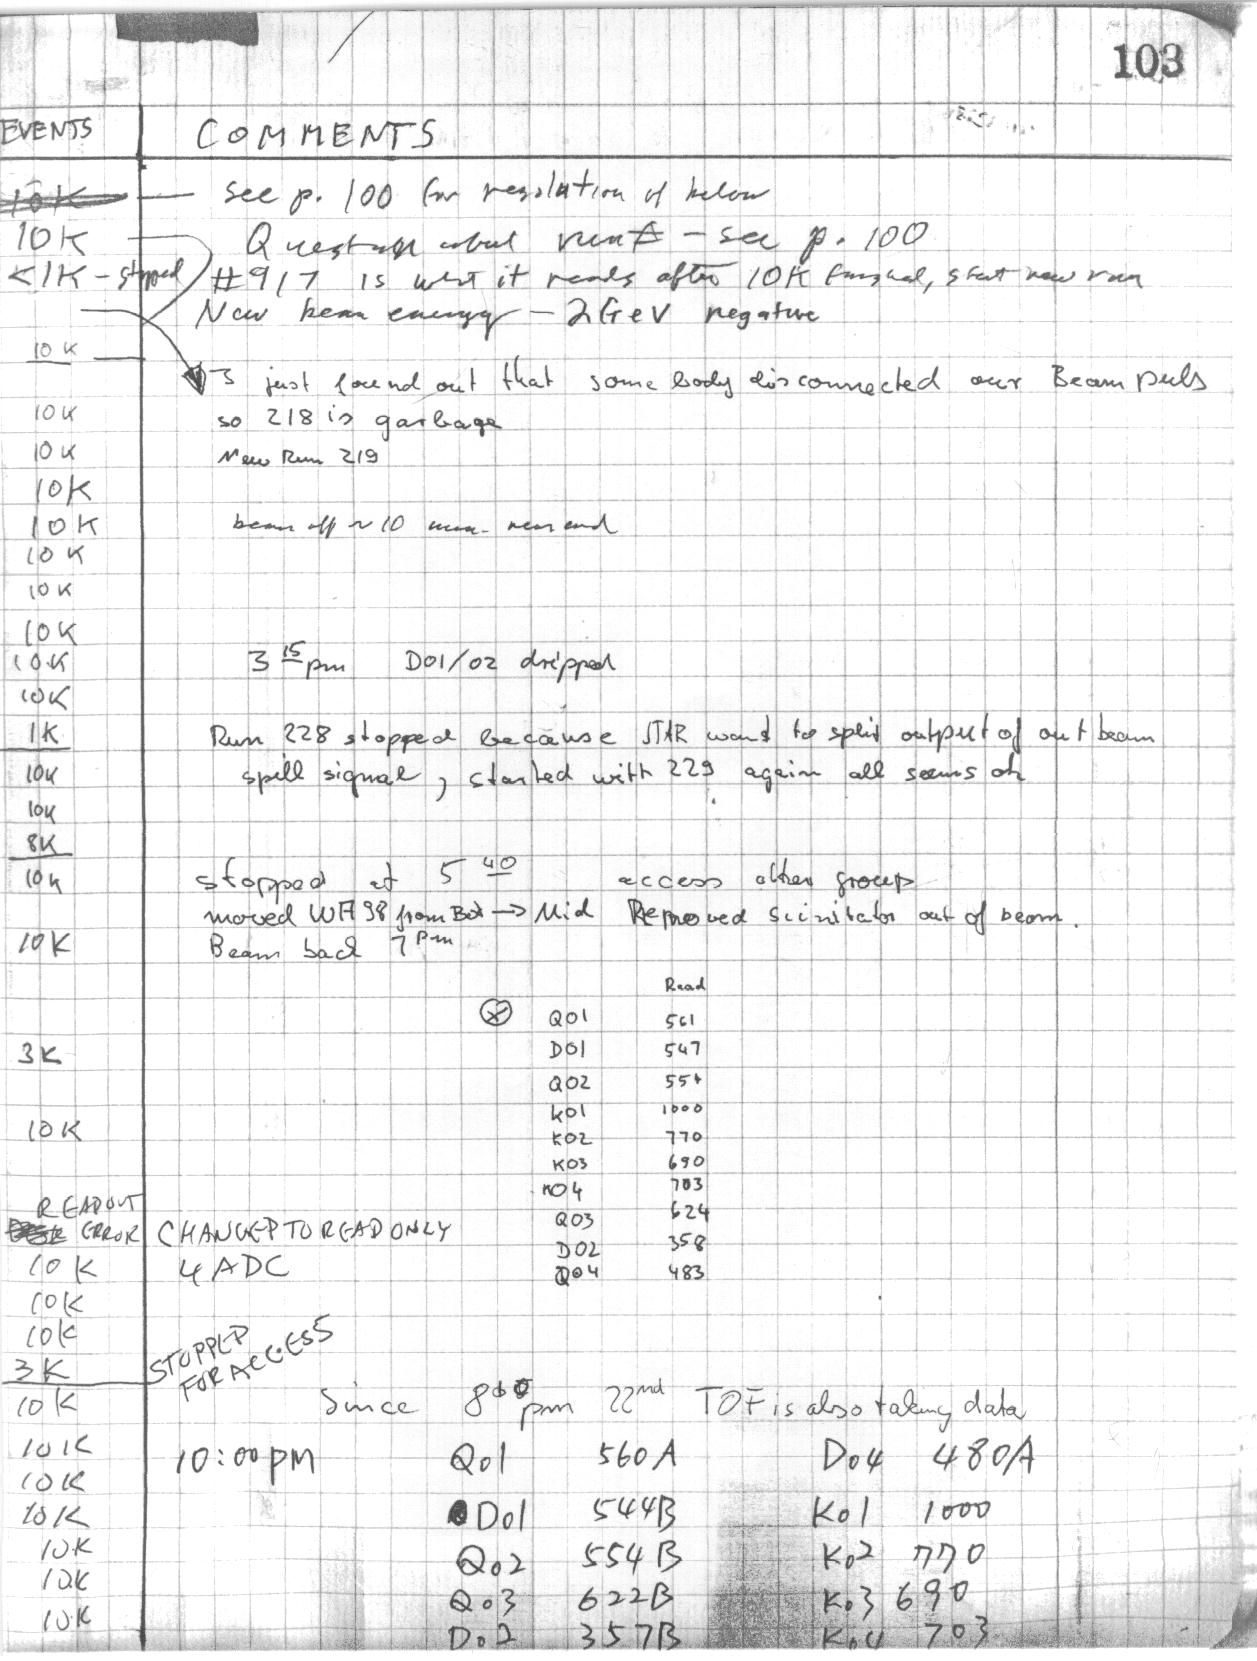 103
EVENTS COMMENTS
10K — see p. 100 for resolution of below
10K Question about run# - see p. 100
<1K - stopped #917 is what it reads after 10K finished, start new run
New beam energy - 2GeV negative
10K
just found out that somebody disconnected our Beam puls
10K so 218 is garbage
10K New Run 219
10K
10K beam off ~ 10 min - near end
10K
10K
10K
10K 3 15 pm D01/02 dripped
10K
1K Run 228 stopped because STAR want to split output of out beam
10K spill signal, started with 229 again all seems ok
10K
8K
10K stopped at 5 40 access other group
moved WA98 from Bot → Mid Removed scinitator out of beam.
10K Beam back 7 pm
Read
⊗ Q01 561
3K D01 547
Q02 554
K01 1000
10K K02 770
K03 690
K04 703
READOUT Q03 624
ERROR CHANGED TO READ ONLY
D02 358
10K 4 ADC Q04 483
10K
10K STOPPED
3K FOR ACCESS
10K Since 8 pm 22nd TOF is also taking data
10K 10:00pm Q01 560A D04 480A
10K
10K D01 544B K01 1000
10K Q02 554B K02 770
10K Q03 622B K03 690
10K D02 357B K04 703